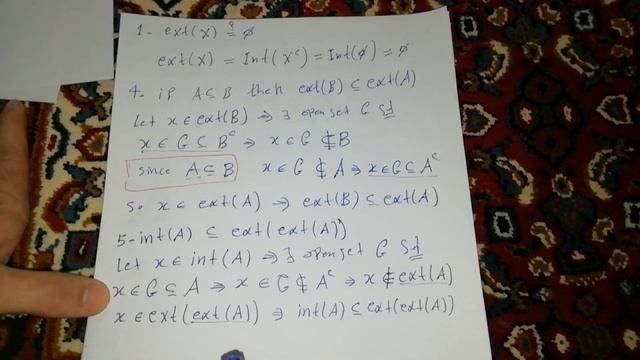 1. ext(X) ≟ ∅
ext(X) = Int(X^c) = Int(∅) = ∅
4. if A⊆B then ext(B) ⊆ ext(A)
Let x ∈ ext(B) ⇒ ∃ open set G st
x ∈ G ⊆ B^c ⇒ x ∈ G ⊄ B
Since A⊆B x ∈ G ⊄ A ⇒ x∈G⊆A^c
So x ∈ ext(A) ⇒ ext(B) ⊆ ext(A)
5-int(A) ⊆ ext(ext(A))
Let x ∈ int(A) ⇒ ∃ open set G st
x∈G⊆A ⇒ x∈G⊄A^c ⇒ x∉ext(A)
x ∈ ext(ext(A)) ⇒ int(A)⊆ext(ext(A))